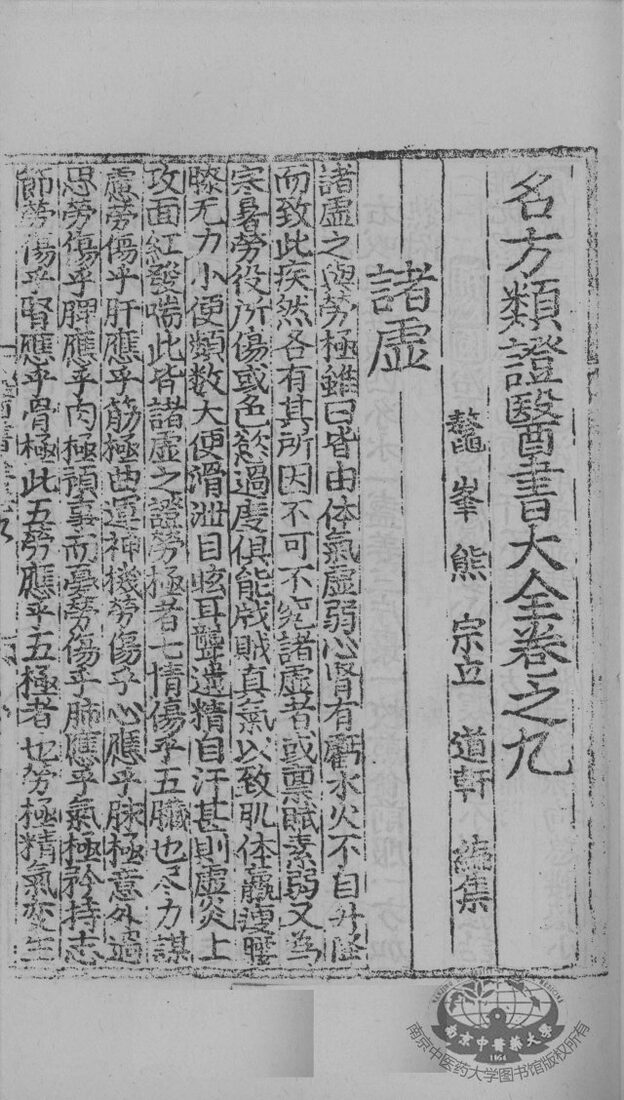 名方類證醫書大全卷之九
鰲峯熊宗立道軒編集
諸虛
諸虛之與勞極雖曰皆由体氣虛弱心腎有虧水火不自升降
而致此疾然各有其所因不可不究諸虛者或禀賦素弱又為
寒暑勞役所傷或色慾過度俱能戕賊真氣以致肌体羸瘦腰
膝无力小便頻数大便滑泄目眩耳聾遺精自汗甚則虛炎上
攻面紅發喘此皆諸虛之證勞極者七情傷乎五臟也尽力謀
慮勞傷乎肝應乎筋極曲運神機勞傷乎心應乎脉極意外過
思勞傷乎脾應乎肉極預事而憂勞傷乎肺應乎氣極矜持志
節勞傷乎腎應乎骨極此五勞應乎五極者也勞極精氣变生
南京中醫藥大學
1954
南京中医药大学图书馆版权所有